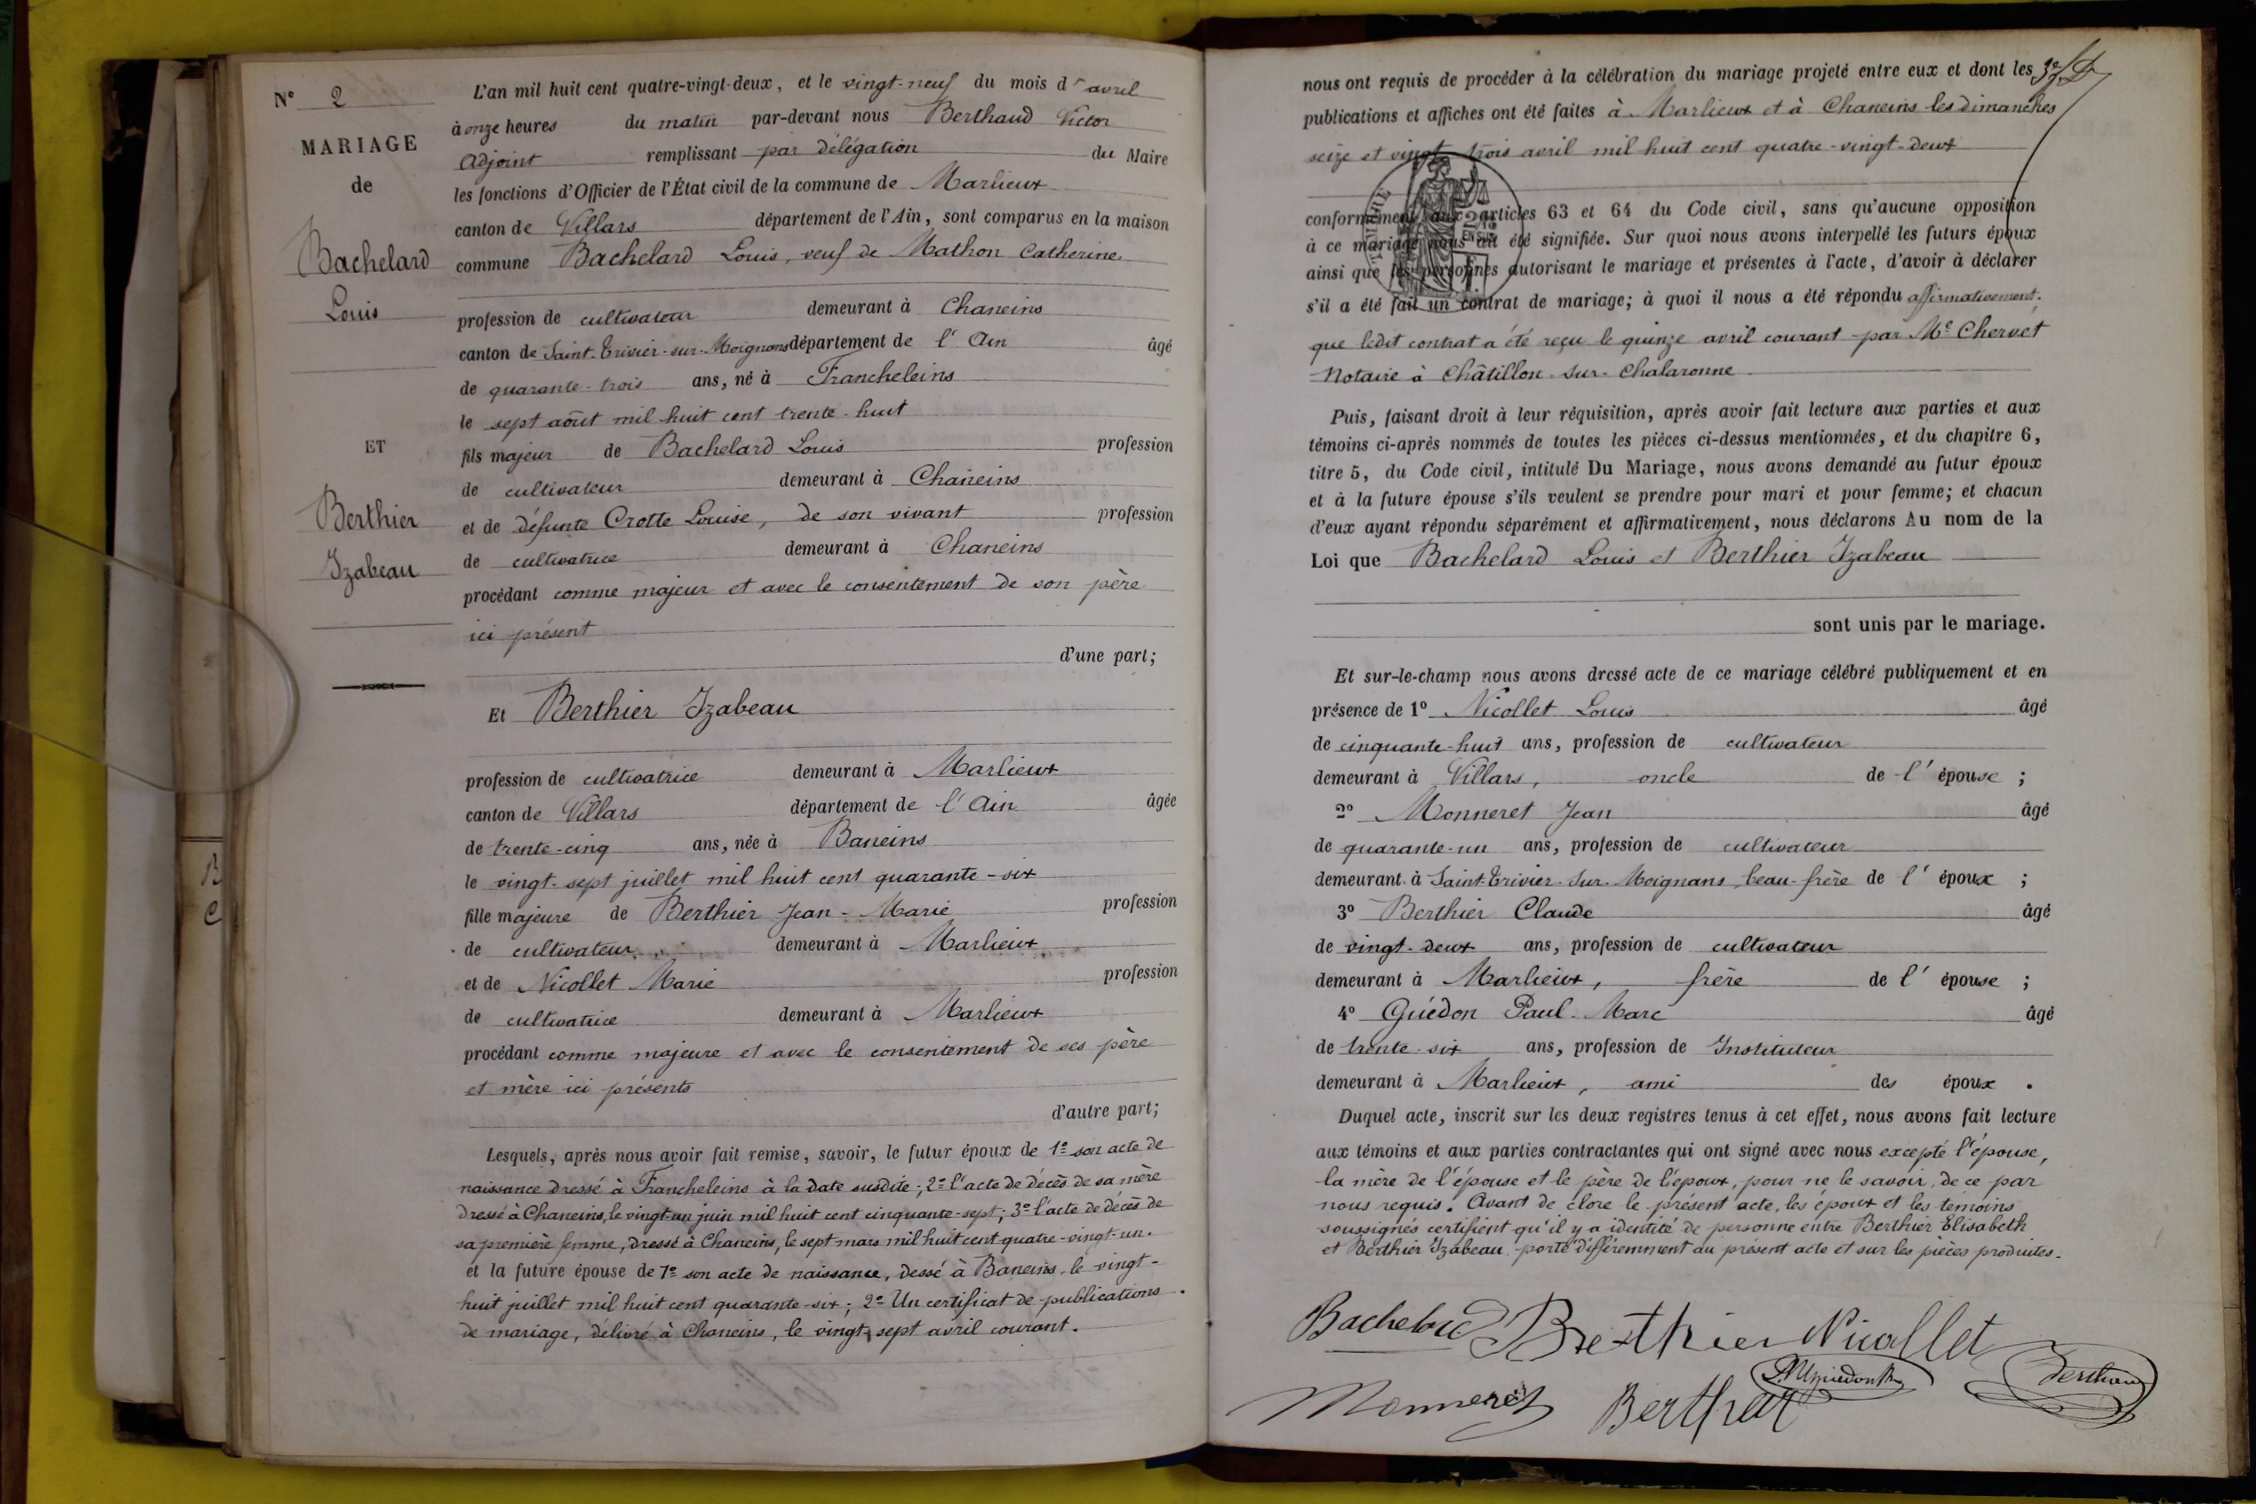 N° 2
MARIAGE
de
Bachelard
Louis
ET
Berthier
Izabeau
L'an mil huit cent quatre-vingt-deux, et le vingt-neuf du mois d'avril
à onze heures du matin par-devant nous Berthaud Victor
Adjoint remplissant par délégation du Maire
les fonctions d'Officier de l'État civil de la commune de Marlieux
canton de Villars département de l'Ain, sont comparus en la maison
commune Bachelard Louis, veuf de Mathon Catherine
profession de cultivateur demeurant à Chaneins
canton de Saint-Trivier-sur-Moignans département de l'Ain âgé
de quarante-trois ans, né à Francheleins
le sept août mil huit cent trente-huit
fils majeur de Bachelard Louis profession
de cultivateur demeurant à Chaneins
et de défunte Crotte Louise, de son vivant profession
de cultivatrice demeurant à Chaneins
procédant comme majeur et avec le consentement de son père
ici présent
d'une part;
Et Berthier Izabeau
profession de cultivatrice demeurant à Marlieux
canton de Villars département de l'Ain âgée
de trente-cinq ans, née à Baneins
le vingt-sept juillet mil huit cent quarante-six
fille majeure de Berthier Jean-Marie profession
de cultivateur demeurant à Marlieux
et de Nicollet Marie profession
de cultivatrice demeurant à Marlieux
procédant comme majeure et avec le consentement de ses père
et mère ici présents
d'autre part;
Lesquels, après nous avoir fait remise, savoir, le futur époux de 1° son acte de
naissance dressé à Francheleins à la date susdite; 2° l'acte de décès de sa mère
dressé à Chaneins, le vingt-un juin mil huit cent cinquante-sept; 3° l'acte de décès de
sa première femme, dressé à Chaneins, le sept mars mil huit cent quatre-vingt-un.
et la future épouse de 1° son acte de naissance, dessé à Baneins, le vingt-
huit juillet mil huit cent quarante-six; 2° Un certificat de publications
de mariage, délivré à Chaneins, le vingt-sept avril courant.
B
C
nous ont requis de procéder à la célébration du mariage projeté entre eux et dont les
publications et affiches ont été faites à Marlieux et à Chaneins les dimanches
seize et vingt-trois avril mil huit cent quatre-vingt-deux
conformément aux articles 63 et 64 du Code civil, sans qu'aucune opposition
à ce mariage nous ait été signifiée. Sur quoi nous avons interpellé les futurs époux
ainsi que les personnes autorisant le mariage et présentes à l'acte, d'avoir à déclarer
s'il a été fait un contrat de mariage; à quoi il nous a été répondu affirmativement.
que ledit contrat a été reçu le quinze avril courant par Me Chervet
Notaire à Châtillon-sur-Chalaronne
Puis, faisant droit à leur réquisition, après avoir fait lecture aux parties et aux
témoins ci-après nommés de toutes les pièces ci-dessus mentionnées, et du chapitre 6,
titre 5, du Code civil, intitulé Du Mariage, nous avons demandé au futur époux
et à la future épouse s'ils veulent se prendre pour mari et pour femme; et chacun
d'eux ayant répondu séparément et affirmativement, nous déclarons Au nom de la
Loi que Bachelard Louis et Berthier Izabeau
sont unis par le mariage.
Et sur-le-champ nous avons dressé acte de ce mariage célébré publiquement et en
présence de 1° Nicollet Louis âgé
de cinquante-huit ans, profession de cultivateur
demeurant à Villars, oncle de l'épouse ;
2° Monneret Jean âgé
de quarante-un ans, profession de cultivateur
demeurant à Saint-Trivier-sur-Moignans, beau-frère de l'époux ;
3° Berthier Claude âgé
de vingt-deux ans, profession de cultivateur
demeurant à Marlieux, frère de l'épouse ;
4° Guédon Paul-Marc âgé
de trente-six ans, profession de Instituteur
demeurant à Marlieux, ami des époux .
Duquel acte, inscrit sur les deux registres tenus à cet effet, nous avons fait lecture
aux témoins et aux parties contractantes qui ont signé avec nous excepté l'épouse,
la mère de l'épouse et le père de l'époux, pour ne le savoir, de ce par
nous requis. Avant de clore le présent acte, les époux et les témoins
soussignés certifient qu'il y a identité de personne entre Berthier Elisabeth
et Berthier Izabeau porté différemment au présent acte et sur les pièces produites.
Bachelard Berthier Nicollet
Monneret Berthier Berthaud